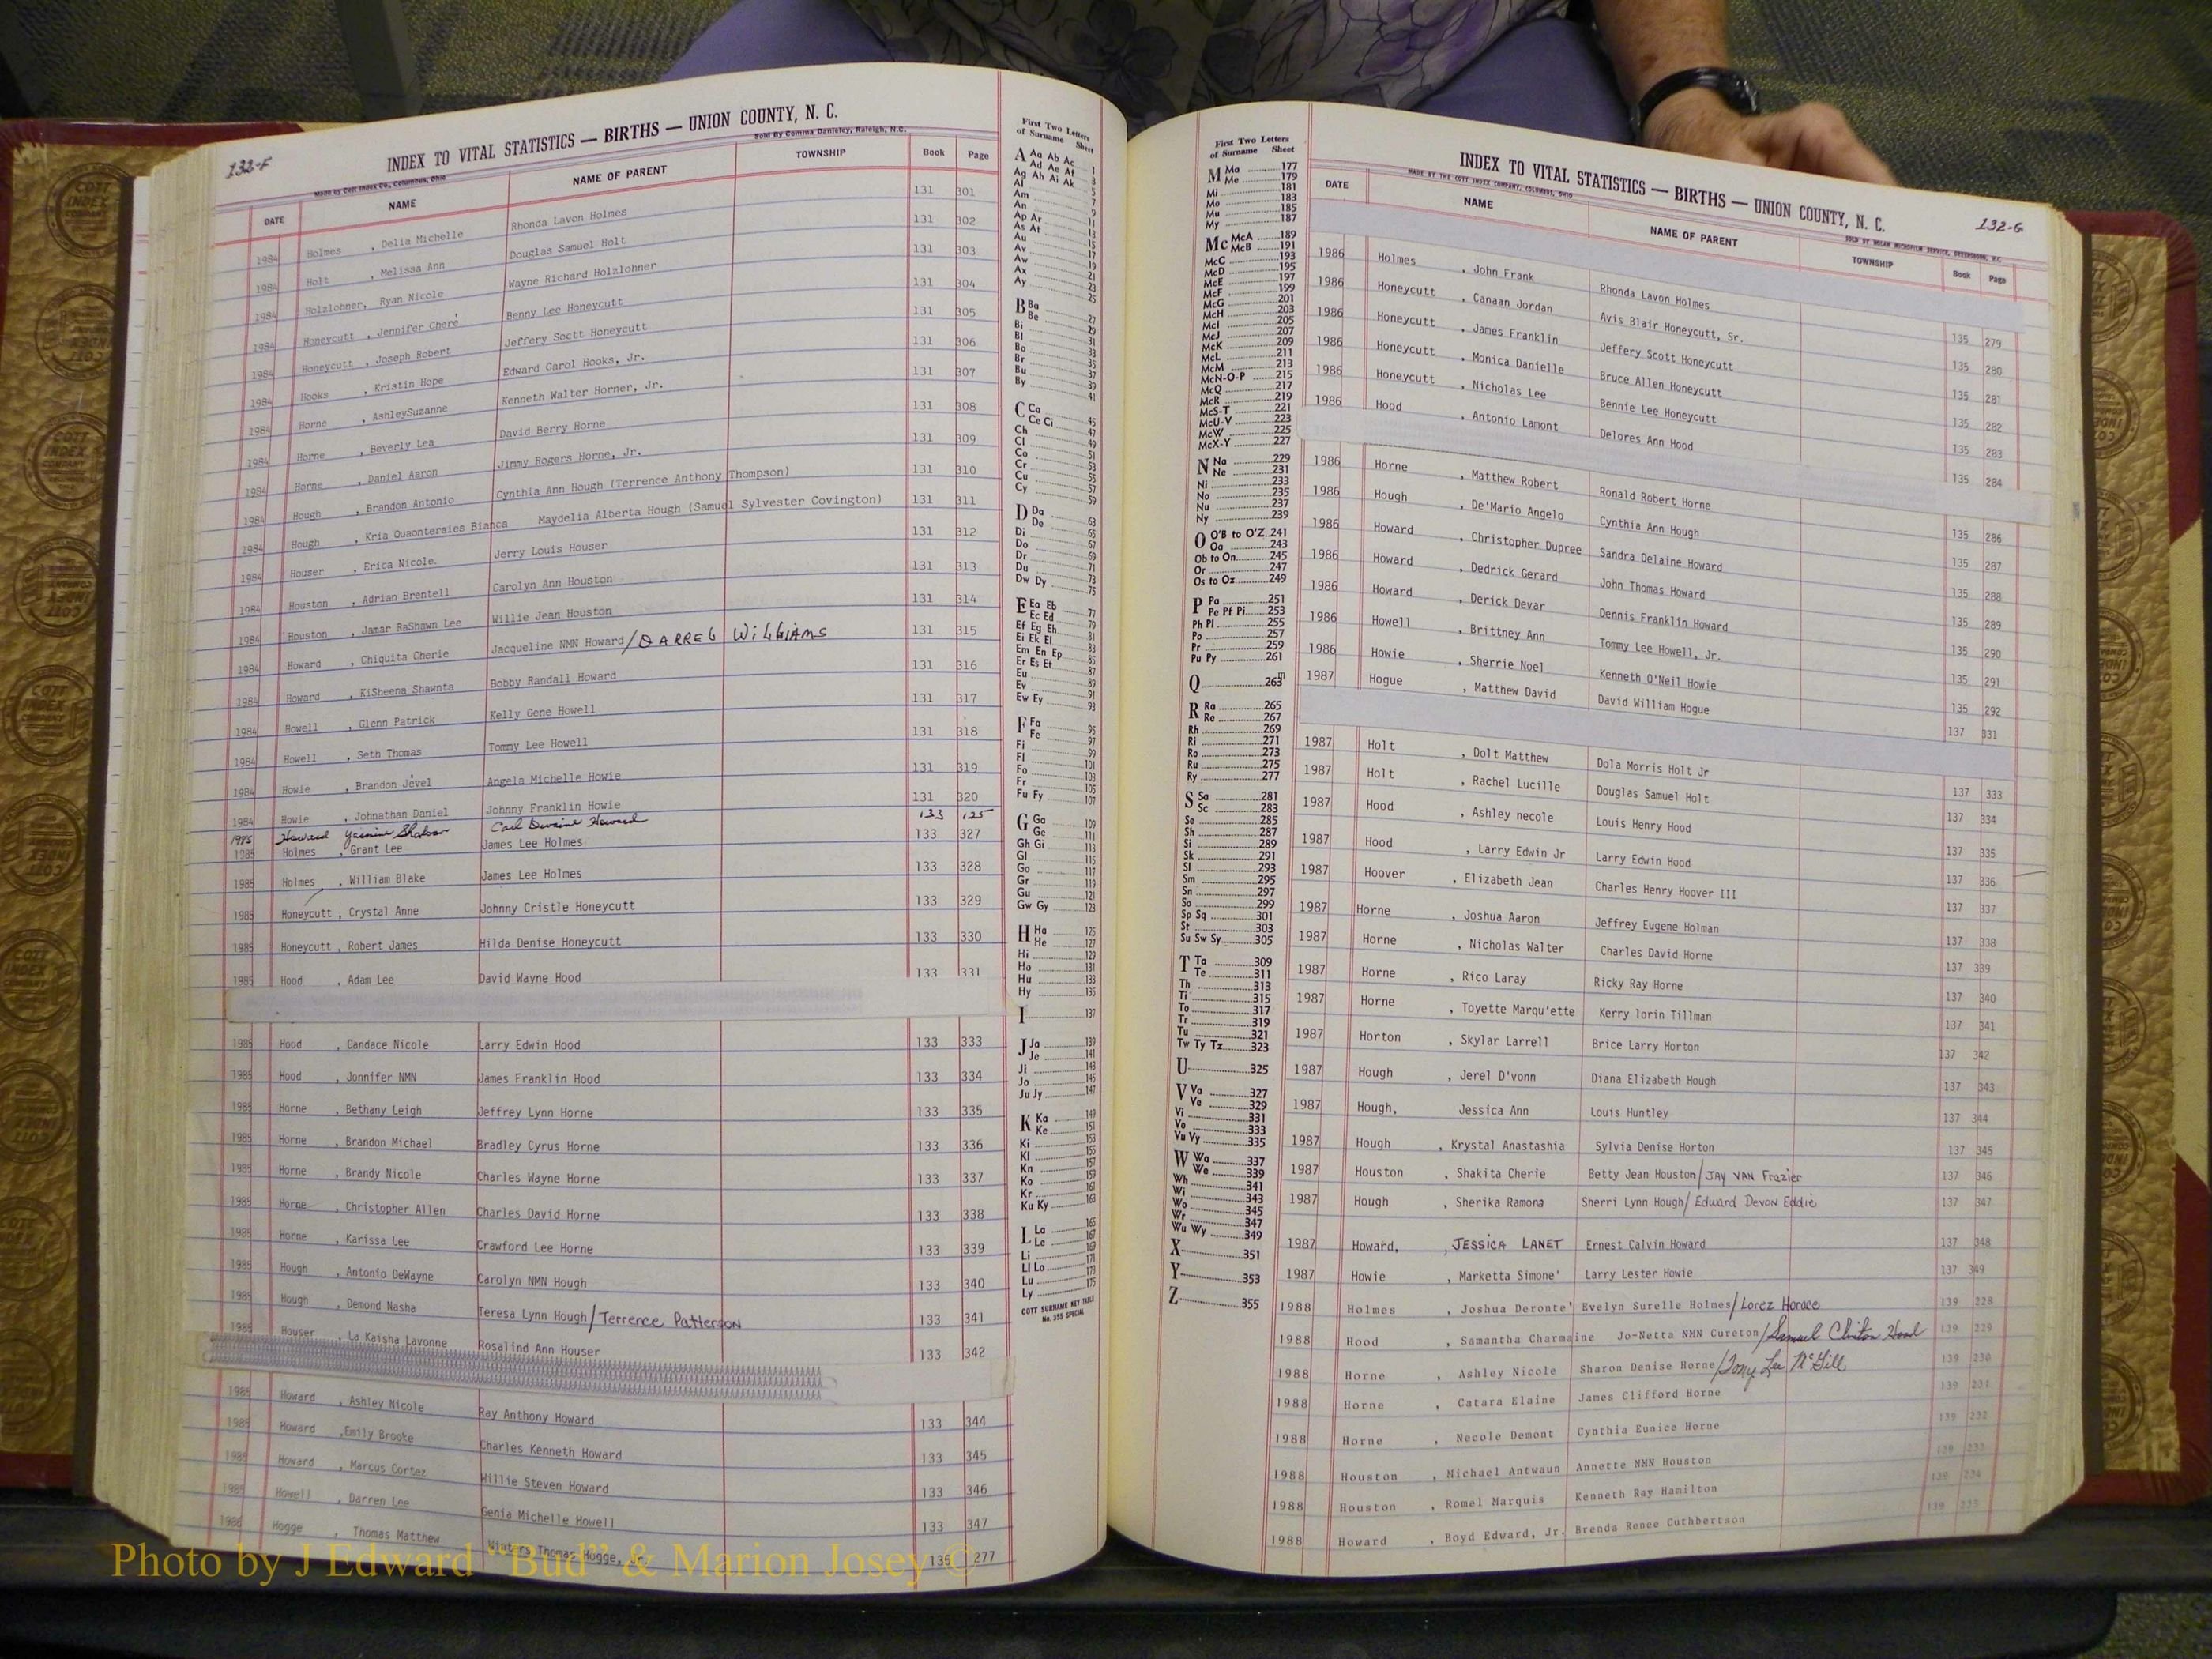 132-F
INDEX TO VITAL STATISTICS — BIRTHS — UNION COUNTY, N. C.
Made by Cott Index Co., Columbus, Ohio
Sold By Comma Danieley, Raleigh, N.C.
DATE NAME NAME OF PARENT TOWNSHIP Book Page
1984 Holmes , Delia Michelle Rhonda Lavon Holmes 131 301
1984 Holt , Melissa Ann Douglas Samuel Holt 131 302
1984 Holzlohner, Ryan Nicole Wayne Richard Holzlohner 131 303
1984 Honeycutt , Jennifer Chere' Benny Lee Honeycutt 131 304
1984 Honeycutt , Joseph Robert Jeffery Soctt Honeycutt 131 305
1984 Hooks , Kristin Hope Edward Carol Hooks, Jr. 131 306
1984 Horne , AshleySuzanne Kenneth Walter Horner, Jr. 131 307
1984 Horne , Beverly Lea David Berry Horne 131 308
1984 Horne , Daniel Aaron Jimmy Rogers Horne, Jr. 131 309
1984 Hough , Brandon Antonio Cynthia Ann Hough (Terrence Anthony Thompson) 131 310
1984 Hough , Kria Quaonteraies Bianca Maydelia Alberta Hough (Samuel Sylvester Covington) 131 311
1984 Houser , Erica Nicole Jerry Louis Houser 131 312
1984 Houston , Adrian Brentell Carolyn Ann Houston 131 313
1984 Houston , Jamar RaShawn Lee Willie Jean Houston 131 314
1984 Howard , Chiquita Cherie Jacqueline NMN Howard/DARREL WiLLiAMS 131 315
1984 Howard , KiSheena Shawnta Bobby Randall Howard 131 316
1984 Howell , Glenn Patrick Kelly Gene Howell 131 317
1984 Howell , Seth Thomas Tommy Lee Howell 131 318
1984 Howie , Brandon Jével Angela Michelle Howie 131 319
1984 Howie , Johnathan Daniel Johnny Franklin Howie 131 320
1985 Howard Carl Dwaine Howard 133 125
1985 Holmes , Grant Lee James Lee Holmes 133 327
1985 Holmes , William Blake James Lee Holmes 133 328
1985 Honeycutt , Crystal Anne Johnny Cristle Honeycutt 133 329
1985 Honeycutt , Robert James Hilda Denise Honeycutt 133 330
1985 Hood , Adam Lee David Wayne Hood 133 331
1985 Hood , Candace Nicole Larry Edwin Hood 133 333
1985 Hood , Jonnifer NMN James Franklin Hood 133 334
1985 Horne , Bethany Leigh Jeffrey Lynn Horne 133 335
1985 Horne , Brandon Michael Bradley Cyrus Horne 133 336
1985 Horne , Brandy Nicole Charles Wayne Horne 133 337
1985 Horne , Christopher Allen Charles David Horne 133 338
1985 Horne , Karissa Lee Crawford Lee Horne 133 339
1985 Hough , Antonio DeWayne Carolyn NMN Hough 133 340
1985 Hough , Demond Nasha Teresa Lynn Hough/Terrence Patterson 133 341
1985 Houser , La Kaisha Lavonne Rosalind Ann Houser 133 342
1985 Howard , Ashley Nicole Ray Anthony Howard 133 344
1985 Howard ,Emily Brooke Charles Kenneth Howard 133 345
1985 Howard , Marcus Cortez Willie Steven Howard 133 346
1985 Howell , Darren Lee Genia Michelle Howell 133 347
1986 Hogge , Thomas Matthew Winters Thomas Hogge, Jr. 135 277
First Two Letters
of Surname Sheet
A Aa Ab Ac 1
Ad Ae Af 3
Ag Ah Ai Ak 5
Al 7
Am 9
An 11
Ap Ar 13
As At 15
Au 17
Av 19
Aw 21
Ax 23
Ay 25
B Ba 27
Be 29
Bi 31
Bl 33
Bo 35
Br 37
Bu 39
By 41
C Ca 45
Ce Ci 47
Ch 49
Cl 51
Co 53
Cr 55
Cu 57
Cy 59
D Da 63
De 65
Di 67
Do 69
Dr 71
Du 73
Dw Dy 75
E Ea Eb 77
Ec Ed 79
Ef Eg Eh 81
Ei Ek El 83
Em En Ep 85
Er Es Et 87
Eu 89
Ev 91
Ew Ey 93
F Fa 95
Fe 97
Fi 99
Fl 101
Fo 103
Fr 105
Fu Fy 107
G Ga 109
Ge 111
Gh Gi 113
Gl 115
Go 117
Gr 119
Gu 121
Gw Gy 123
H Ha 125
He 127
Hi 129
Ho 131
Hu 133
Hy 135
I 137
J Ja 139
Je 141
Ji 143
Jo 145
Ju Jy 147
K Ka 149
Ke 151
Ki 153
Kl 155
Kn 157
Ko 159
Kr 161
Ku Ky 163
L La 165
Le 167
Li 169
Ll Lo 171
Lu 173
Ly 175
COTT SURNAME KEY TABLE
No. 355 SPECIAL
First Two Letters
of Surname Sheet
M Ma 177
Me 179
Mi 181
Mo 183
Mu 185
My 187
Mc McA 189
McB 191
McC 193
McD 195
McE 197
McF 199
McG 201
McH 203
McI 205
McJ 207
McK 209
McL 211
McM 213
McN-O-P 215
McQ 217
McR 219
McS-T 221
McU-V 223
McW 225
McX-Y 227
N Na 229
Ne 231
Ni 233
No 235
Nu 237
Ny 239
O O'B to O'Z 241
Oa 243
Ob to On 245
Or 247
Os to Oz 249
P Pa 251
Pe Pf Pi 253
Ph Pl 255
Po 257
Pr 259
Pu Py 261
Q 263
R Ra 265
Re 267
Rh 269
Ri 271
Ro 273
Ru 275
Ry 277
S Sa 281
Sc 283
Se 285
Sh 287
Si 289
Sk 291
Sl 293
Sm 295
Sn 297
So 299
Sp Sq 301
St 303
Su Sw Sy 305
T Ta 309
Te 311
Th 313
Ti 315
To 317
Tr 319
Tu 321
Tw Ty Tz 323
U 325
V Va 327
Ve 329
Vi 331
Vo 333
Vu Vy 335
W Wa 337
We 339
Wh 341
Wi 343
Wo 345
Wr 347
Wu Wy 349
X 351
Y 353
Z 355
INDEX TO VITAL STATISTICS — BIRTHS — UNION COUNTY, N. C.
132-G
MADE BY THE COTT INDEX COMPANY, COLUMBUS, OHIO
SOLD BY MOLAN MICROFILM SERVICE, GREENSBORO, N.C.
DATE NAME NAME OF PARENT TOWNSHIP Book Page
1986 Holmes , John Frank Rhonda Lavon Holmes 135 279
1986 Honeycutt , Canaan Jordan Avis Blair Honeycutt, Sr. 135 280
1986 Honeycutt , James Franklin Jeffery Scott Honeycutt 135 281
1986 Honeycutt , Monica Danielle Bruce Allen Honeycutt 135 282
1986 Honeycutt , Nicholas Lee Bennie Lee Honeycutt 135 283
1986 Hood , Antonio Lamont Delores Ann Hood 135 284
1986 Horne , Matthew Robert Ronald Robert Horne 135 286
1986 Hough , De'Mario Angelo Cynthia Ann Hough 135 287
1986 Howard , Christopher Dupree Sandra Delaine Howard 135 288
1986 Howard , Dedrick Gerard John Thomas Howard 135 289
1986 Howard , Derick Devar Dennis Franklin Howard 135 290
1986 Howell , Brittney Ann Tommy Lee Howell, Jr. 135 291
1986 Howie , Sherrie Noel Kenneth O'Neil Howie 135 292
1987 Hogue , Matthew David David William Hogue 137 331
1987 Holt , Dolt Matthew Dola Morris Holt Jr 137 333
1987 Holt , Rachel Lucille Douglas Samuel Holt 137 334
1987 Hood , Ashley necole Louis Henry Hood 137 335
1987 Hood , Larry Edwin Jr Larry Edwin Hood 137 336
1987 Hoover , Elizabeth Jean Charles Henry Hoover III 137 337
1987 Horne , Joshua Aaron Jeffrey Eugene Holman 137 338
1987 Horne , Nicholas Walter Charles David Horne 137 339
1987 Horne , Rico Laray Ricky Ray Horne 137 340
1987 Horne , Toyette Marqu'ette Kerry lorin Tillman 137 341
1987 Horton , Skylar Larrell Brice Larry Horton 137 342
1987 Hough , Jerel D'vonn Diana Elizabeth Hough 137 343
1987 Hough, Jessica Ann Louis Huntley 137 344
1987 Hough , Krystal Anastashia Sylvia Denise Horton 137 345
1987 Houston , Shakita Cherie Betty Jean Houston/JAY VAN Frazier 137 346
1987 Hough , Sherika Ramona Sherri Lynn Hough/Edward Devon Eddie 137 347
1987 Howard, , JESSICA LANET Ernest Calvin Howard 137 348
1987 Howie , Marketta Simone' Larry Lester Howie 137 349
1988 Holmes , Joshua Deronte' Evelyn Surelle Holmes/Lorez Horace 139 228
1988 Hood , Samantha Charmaine Jo-Netta NMN Cureton/Samuel Clinton Hood 139 229
1988 Horne , Ashley Nicole Sharon Denise Horne/Tony Lee McGill 139 230
1988 Horne , Catara Elaine James Clifford Horne 139 231
1988 Horne , Necole Demont Cynthia Eunice Horne 139 232
1988 Houston , Michael Antwaun Annette NMN Houston 139 233
1988 Houston , Romel Marquis Kenneth Ray Hamilton 139 234
1988 Howard , Boyd Edward, Jr. Brenda Renee Cuthbertson 139 235
Photo by J Edward "Bud" & Marion Josey ©